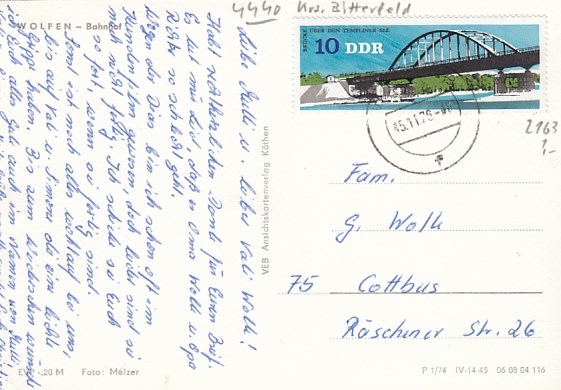 4440 Krs. Bitterfeld
WOLFEN – Bahnhof
BRÜCKE ÜBER DEN TEMPLINER SEE
10 DDR
15.11.76
2163
1,-
Liebe Gulli u. lieber Kali Wolk!
Habt herzlichen Dank für Euren Brief.
Es tut mir Leid, daß es Oma Wolk u. Opa
so schlecht geht.
Wegen der Dias bin ich schon oft im
gewesen, doch leider sind sie
noch nicht fertig. Ich schicke sie Euch
sofort, wenn sie fertig sind.
ist noch alles wohlauf bei uns,
bis auf u. Simone die eine leichte
Grippe haben. Bis zum Wiedersehen wünscht
Euch alles Gute auch im Namen von
VEB Ansichtskartenverlag Köthen
Fam.
G. Wolk
75 Cottbus
Räschener Str. 26
EVP -,20 M Foto: Melzer
P 1/74 IV-14-45 06 08 04 116